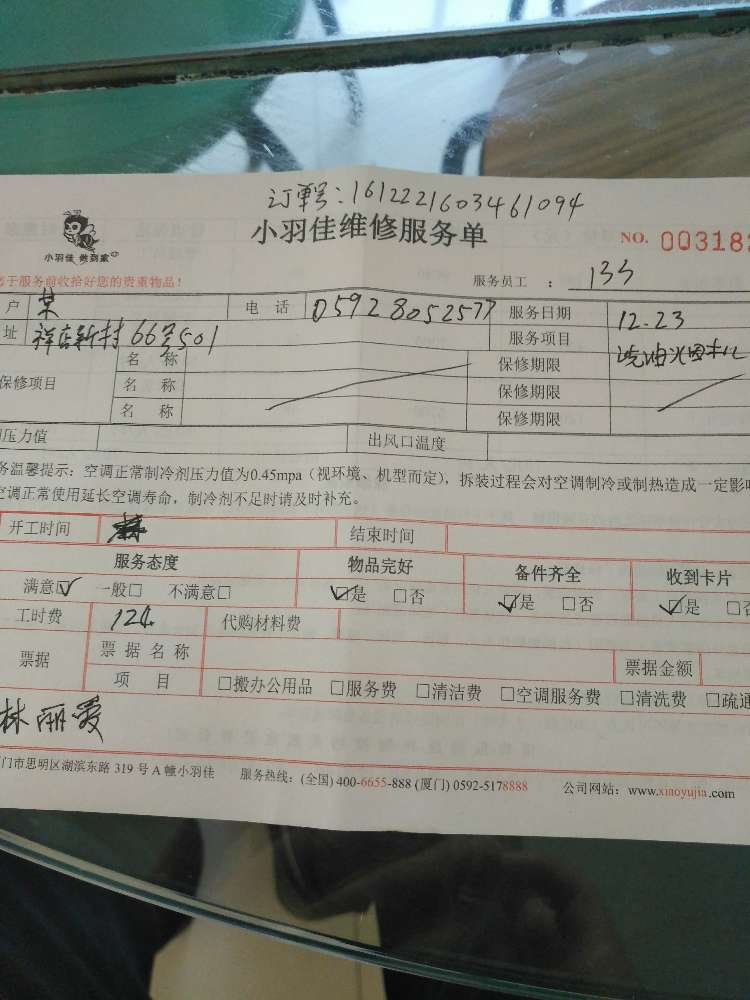 订单号：1612221603461094
小羽佳 做到家
小羽佳维修服务单
NO. 003182
于服务前收拾好您的贵重物品！
服务员工 ：
户 某 电 话 05928052577 服务日期 12.23
址 祥店新村66号501 服务项目 洗油烟机
名 称 保修期限
保修项目 名 称 保修期限
名 称 保修期限
压力值 出风口温度
务温馨提示：空调正常制冷剂压力值为0.45mpa（视环境、机型而定），拆装过程会对空调制冷或制热造成一定影
空调正常使用延长空调寿命，制冷剂不足时请及时补充。
开工时间 结束时间
服务态度 物品完好 备件齐全 收到卡片
满意☑ 一般□ 不满意□ ☑是 □否 ☑是 □否 ☑是 □否
工时费 124. 代购材料费
票据 票 据 名 称 票据金额
项 目 □搬办公用品 □服务费 □清洁费 □空调服务费 □清洗费 □疏通
林丽爱
门市思明区湖滨东路 319 号 A 幢小羽佳 服务热线：(全国) 400-6655-888 (厦门) 0592-5178888 公司网站：www.xiaoyujia.com